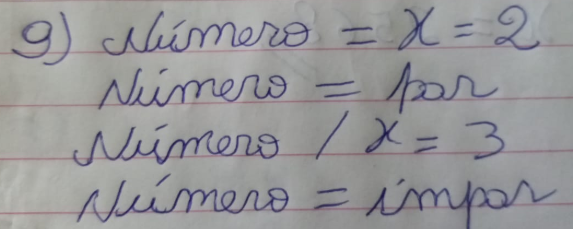 9) Número = x = 2
Número = par
Número / x = 3
Número = impar